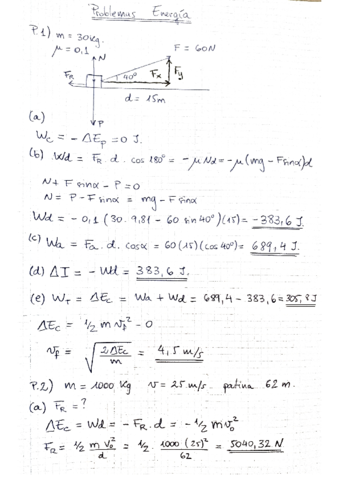 Problemas Energía
P.1) m = 30 Kg.
μ = 0,1
N
F = 60N
F_R
40°
Fx
Fy
d = 15m
P
(a)
Wc = - ΔEp = 0 J.
(b) Wd = F_R . d . cos 180° = - μ N d = - μ (mg - F sinα) d
N + F sinα - P = 0
N = P - F sinα = mg - F sinα
Wd = - 0,1 (30 . 9,81 - 60 sin 40°) (15) = - 383,6 J.
(c) Wa = Fa . d . cosα = 60 (15) (cos 40°) = 689,4 J.
(d) ΔI = - Wd = 383,6 J.
(e) W_T = ΔEc = Wa + Wd = 689,4 - 383,6 = 305,8 J
ΔEc = 1/2 m v_f² - 0
v_f = √(2ΔEc/m) = 4,5 m/s
P.2) m = 1000 Kg v = 25 m/s. patina 62 m.
(a) F_R = ?
ΔEc = Wd = - F_R . d = - 1/2 m v_0²
F_R = 1/2 m v_0²/d = 1/2 . 1000 (25)²/62 = 5040,32 N